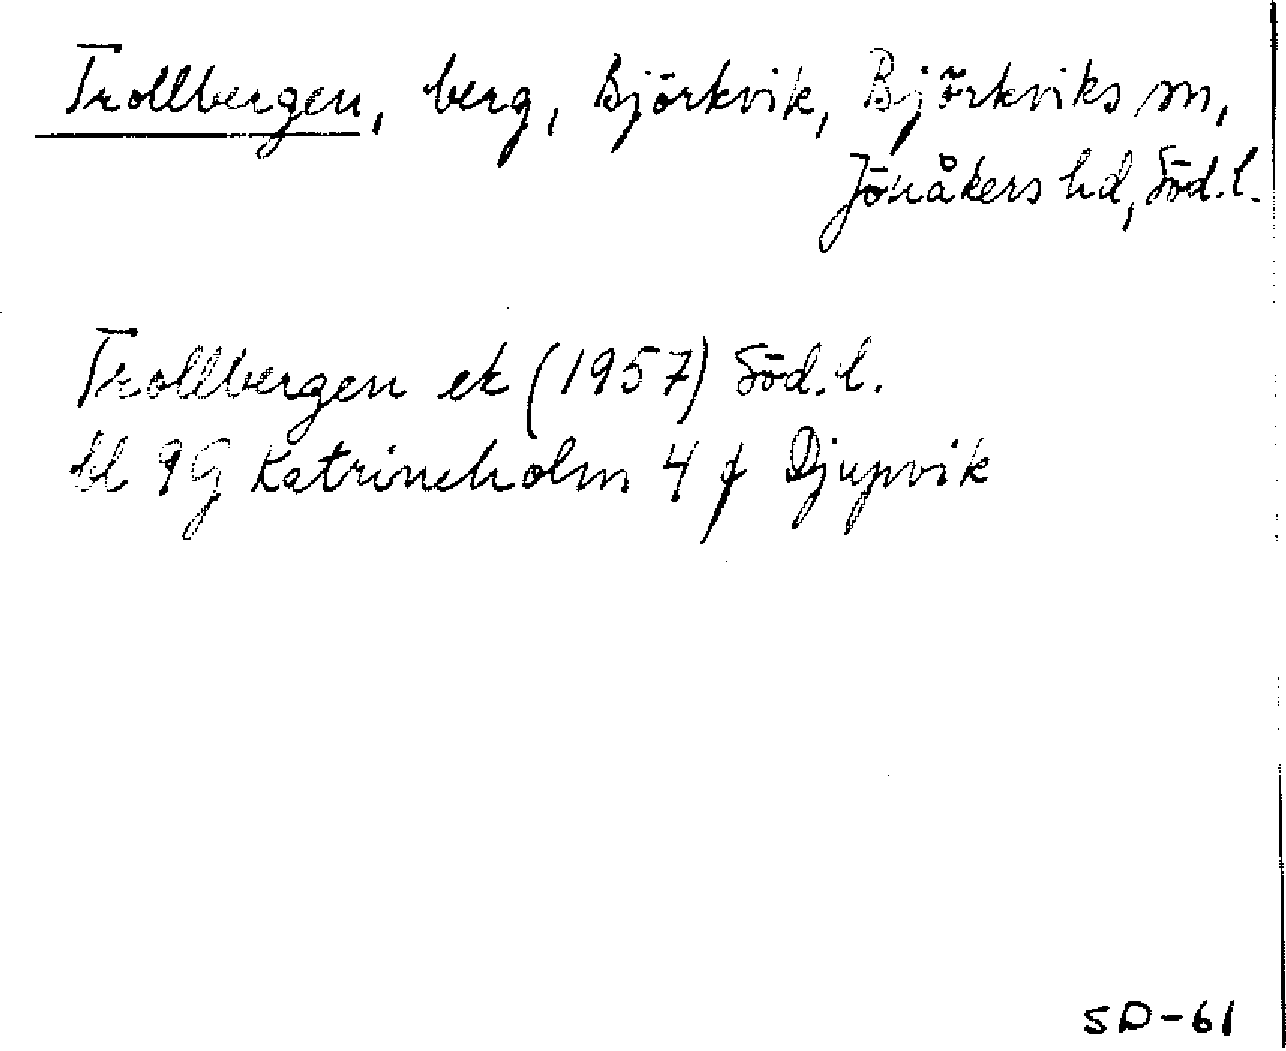 Trollbergen, berg, Björkvik, Björkviks sn,
Jönåkers hd, Söd. l.
Trollbergen ek (1957) Söd. l.
bl 9G Katrineholm 4 f Djupvik
SD-61